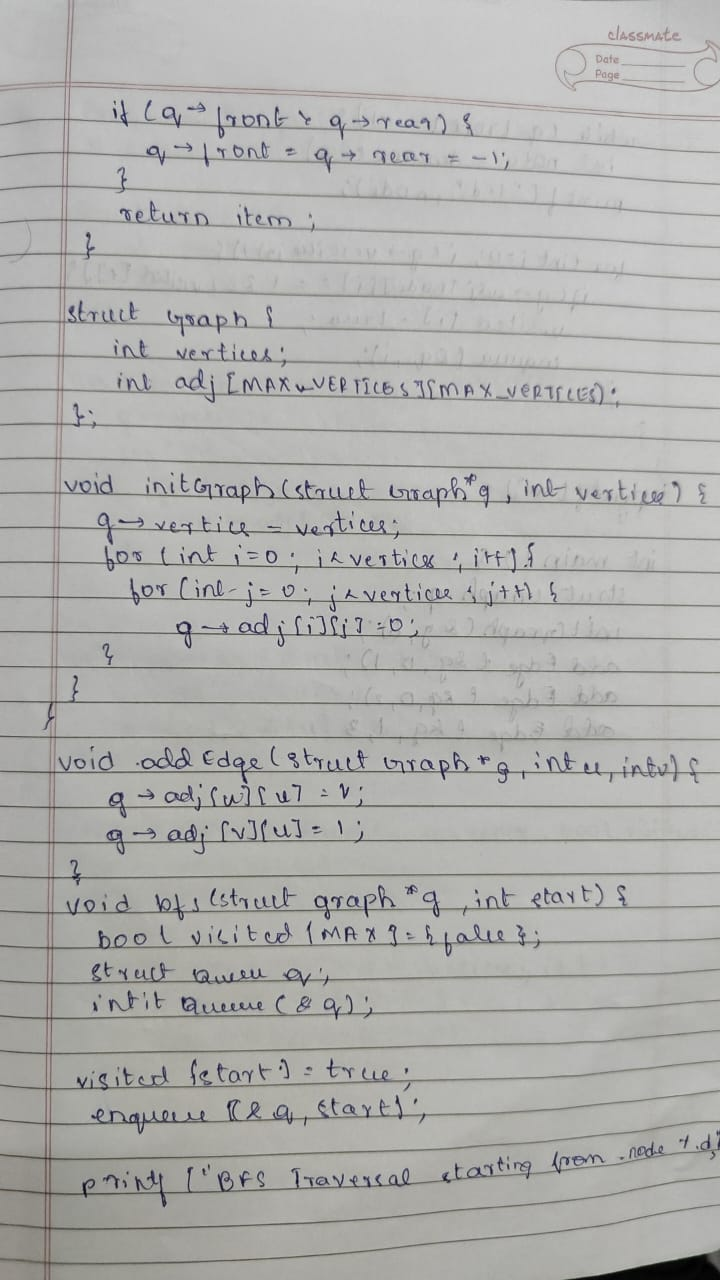 classmate
Date
Page
if (q→front > q→rear) {
q→front = q→rear = -1;
}
return item;
}
struct Graph {
int vertices;
int adj [MAX_VERTICES][MAX_VERTICES);
};
void initGraph(struct Graph *g, int vertices) {
g→vertice = vertices;
for (int i=0; i<vertices; i++] {
for (int j=0; j<vertices; j++) {
g→adj[i][j] =0;
}
}
}
void addEdge(struct Graph *g, int u, int v) {
g→adj[u][u] = v;
g→adj[v][u] = 1;
}
void bfs(struct graph *g, int start) {
bool visited [MAX] = {false};
struct Queue q;
intit Queue (&q);
visited [start] = true;
enqueue [& q, start];
printf ["BFS Traversal starting from node %d,